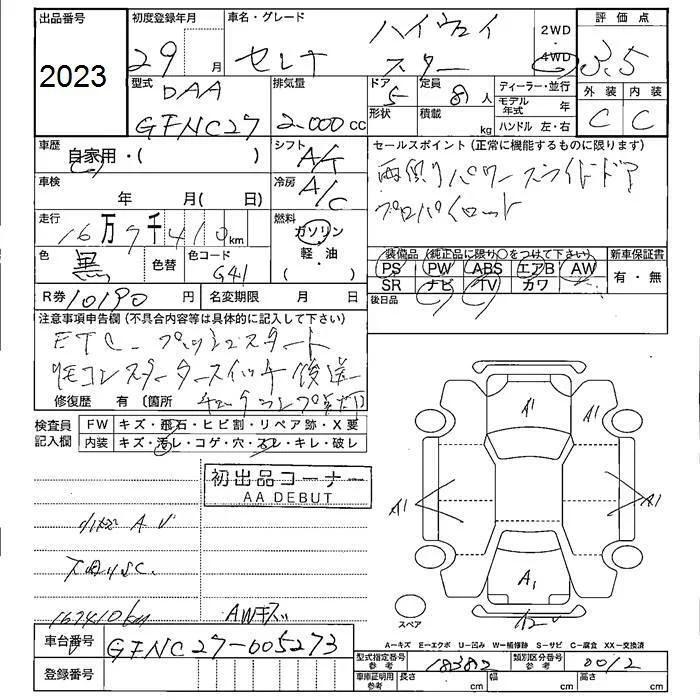 出品番号 初度登録年月 車名・グレード ハイウェイ 2WD 評価点
2023 29 月 セレナ スター 4WD 3.5
型式 排気量 ドア 定員 ディーラー・並行 外装 内装
DAA 5 8 人 モデル年式 年 C C
GFNC27 2000 cc 形状 積載 kg ハンドル 左・右
車歴 シフト セールスポイント (正常に機能するものに限ります)
自家用・( ) A/T 両側パワースライドドア
車検 年 月( 日) 冷房 A/C プロパイロット
走行 16万7千410km 燃料 ガソリン
軽・油
装備品 (純正品に限り○をつけて下さい) 新車保証書
色 黒 色替 色コード G41 PS PW ABS エアB AW 有・無
SR ナビ TV カワ
R券 10190 円 名変期限 月 日 後日品
注意事項申告欄 (不具合内容等は具体的に記入して下さい)
ETC プッシュスタート
リモコンスタータースイッチ後送
修復歴 有 (箇所
検査員 FW キズ・飛石・ヒビ割・リペア跡・X要
記入欄 内装 キズ・汚レ・コゲ・穴・スレ・キレ・破レ
初出品コーナー
AA DEBUT
A1 A1
A1 A1
A1
167410km AWキズ
スペア
車台番号 GFNC27-005273
A=キズ E=エクボ U=凹み W=補修跡 S=サビ C=腐食 XX=交換済
型式指定番号 参考 18382 類別区分番号 参考 0012
登録番号 車庫証明用 参考 長さ cm 幅 cm 高さ cm